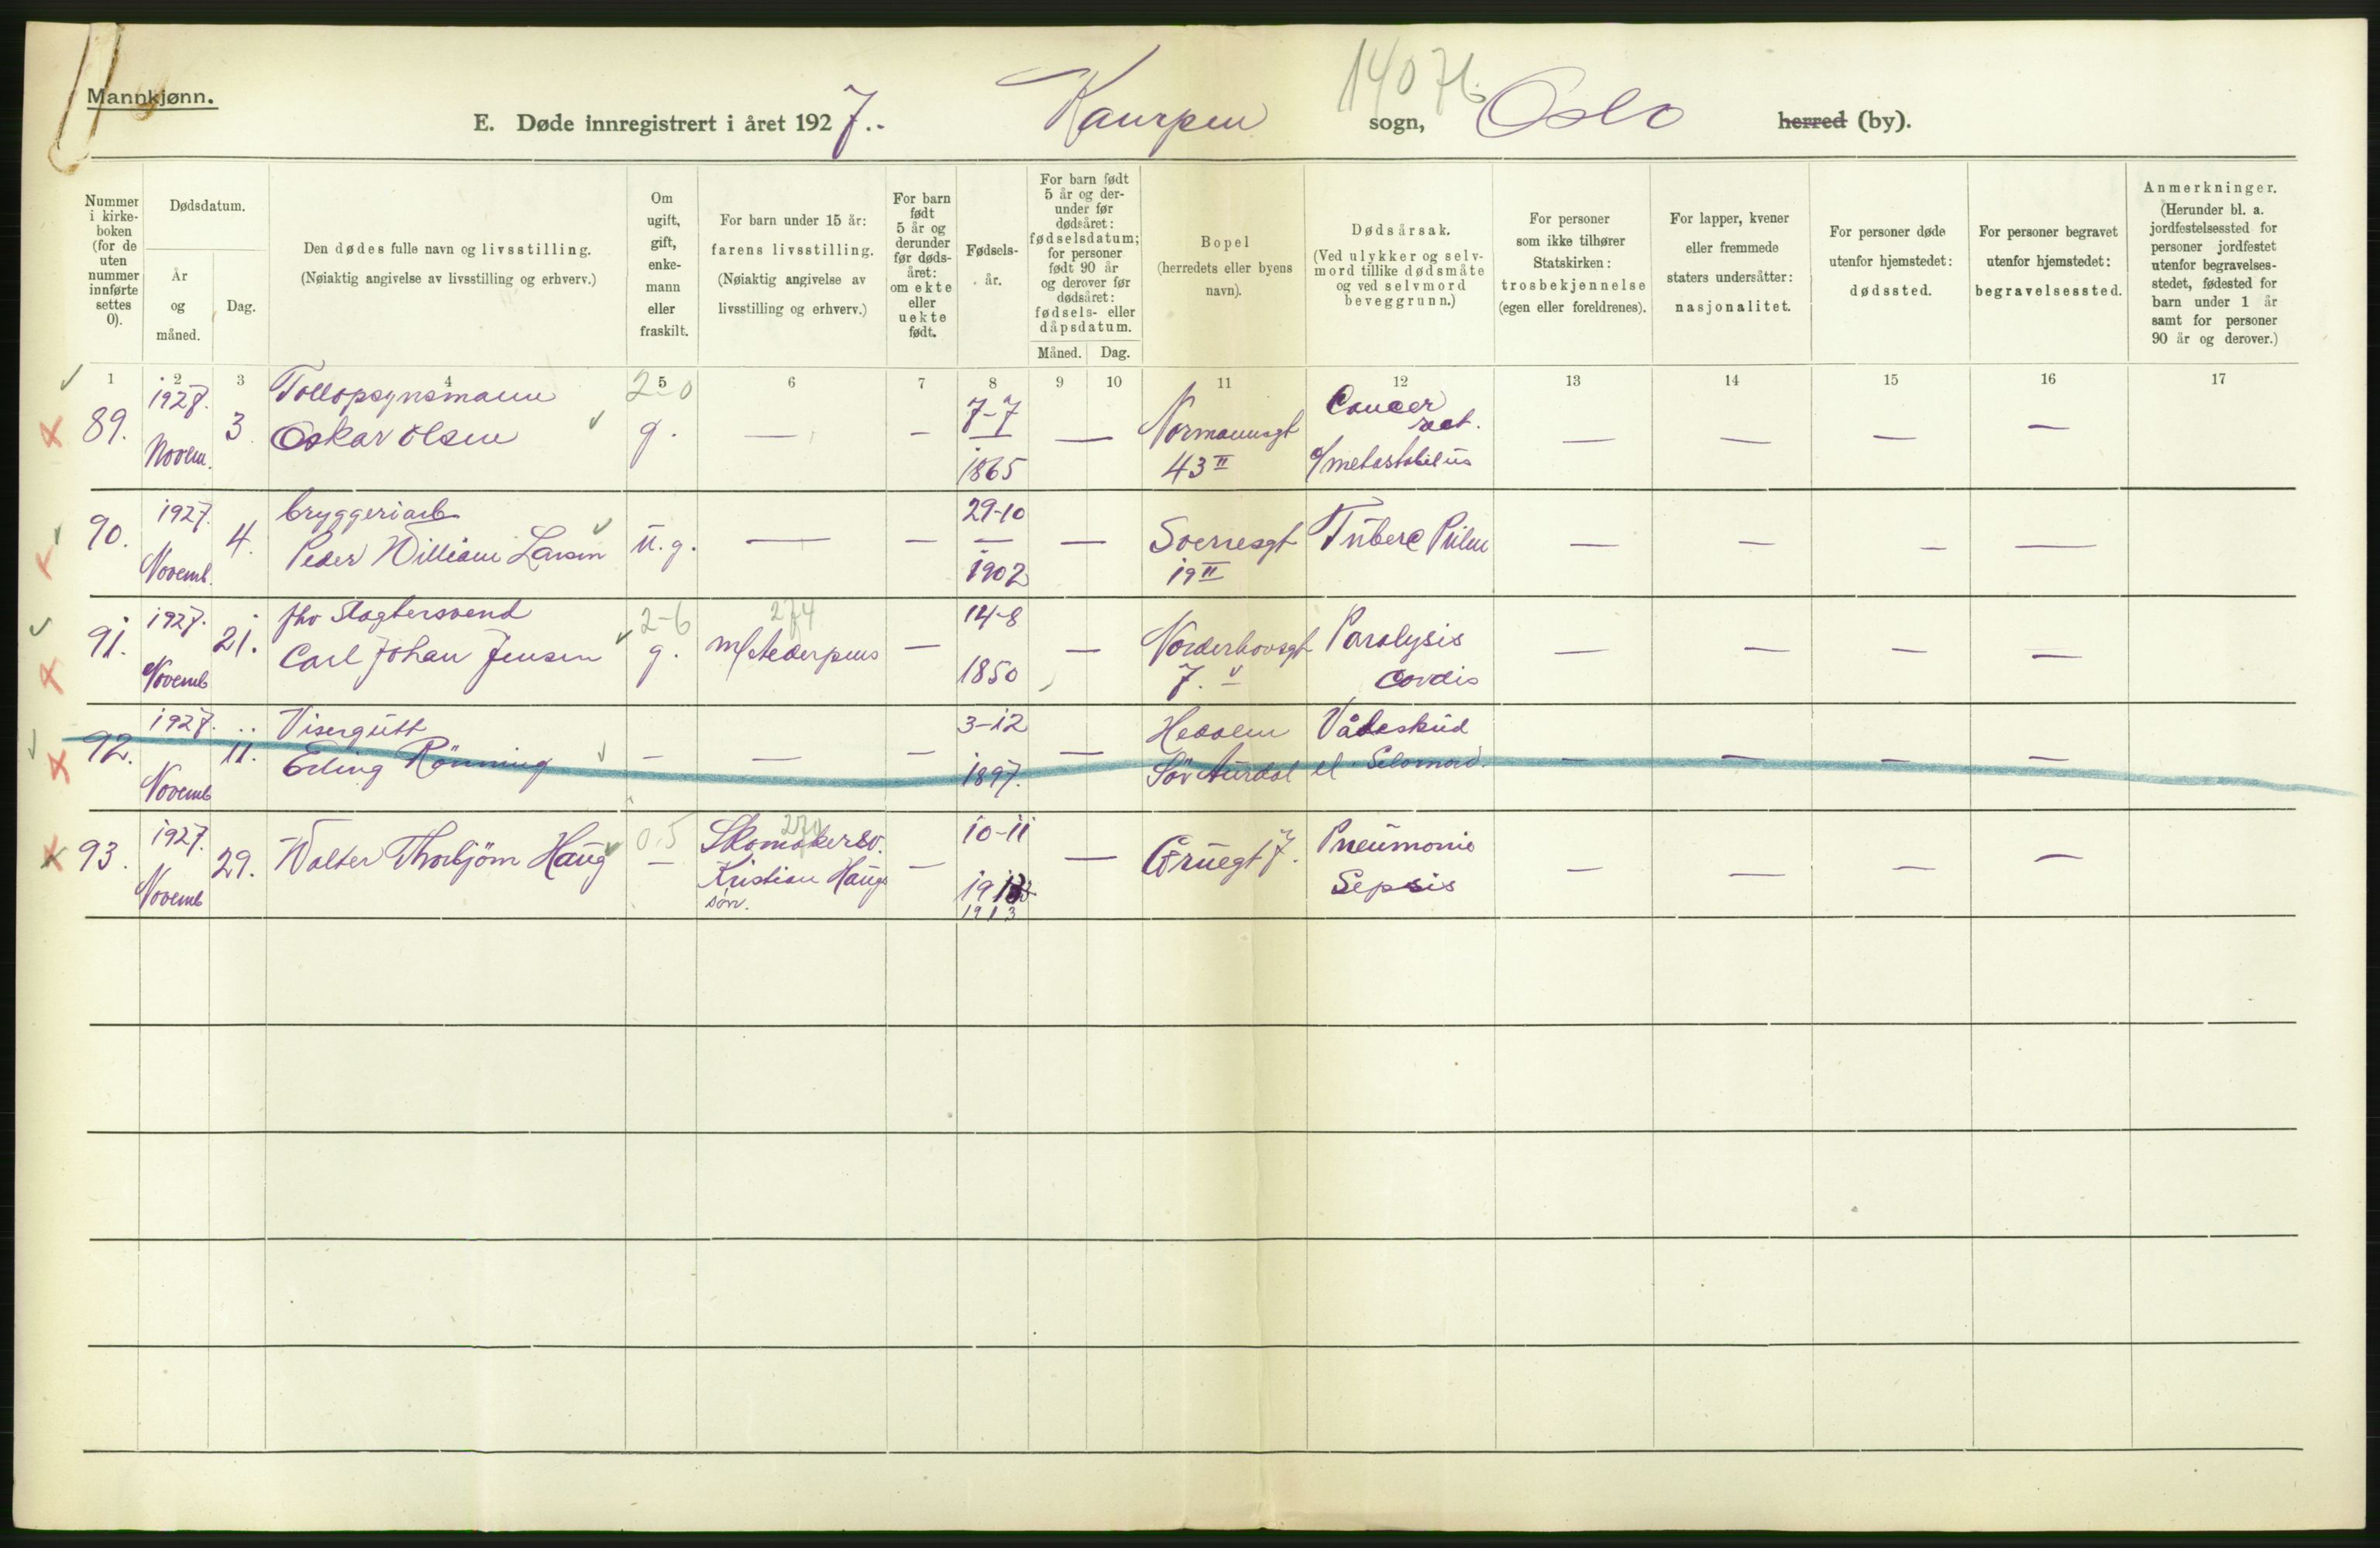 Mannkjønn.
14076.
E. Døde innregistrert i året 1927. Kampen sogn, Oslo herred (by).
Nummer i kirkeboken (for de uten nummer innførte settes 0).
Dødsdatum.
År og måned.
Dag.
Den dødes fulle navn og livsstilling.
(Nøiaktig angivelse av livsstilling og erhverv.)
Om ugift, gift, enkemann eller fraskilt.
For barn under 15 år: farens livsstilling.
(Nøiaktig angivelse av livsstilling og erhverv.)
For barn født 5 år og derunder før dødsåret: om ekte eller uekte født.
Fødselsår.
For barn født 5 år og derunder før dødsåret: fødselsdatum; for personer født 90 år og derover før dødsåret: fødsels- eller dåpsdatum.
Måned. Dag.
Bopel
(herredets eller byens navn).
Dødsårsak.
(Ved ulykker og selvmord tillike dødsmåte og ved selvmord beveggrunn.)
For personer som ikke tilhører Statskirken: trosbekjennelse (egen eller foreldrenes).
For lapper, kvener eller fremmede staters undersåtter: nasjonalitet.
For personer døde utenfor hjemstedet: dødssted.
For personer begravet utenfor hjemstedet: begravelsessted.
Anmerkninger.
(Herunder bl. a. jordfestelsessted for personer jordfestet utenfor begravelsesstedet, fødested for barn under 1 år samt for personer 90 år og derover.)
1 2 3 4 5 6 7 8 9 10 11 12 13 14 15 16 17
89. 1927. Novem. 3. Tollopsynsmann 2-0
Oskar Olsen g. — — 7-7 1865 — Normannsgt 43 II Cancer rect. c/metastabilus — — — —
90. 1927. Novemb. 4. bryggeriarb
Peder William Larsen u.g. — — 29-10 1902 — Sverresgt 19 II Tuberc Pulm — — — —
91. 1927. Novemb 21. fhv Slagtersvend 2-6 274
Carl Johan Jensen g. — 14-8 1850 — Norderhovsgt 7. V Paralysis cordis — — — —
92. 1927. Novemb 11. Visergutt
Erling Rönning — — — 3-12 1897. — Hedalen Sör Aurdal Vådeskud el Selvmord. — — — —
93. 1927. Novemb 29. Walter Thorbjörn Haug 0.5 — 274 Skomakersv. Kristian Haugs sön. — 10-11 1913 — Gruegt 7. Pneumonie Sepsis — — — —